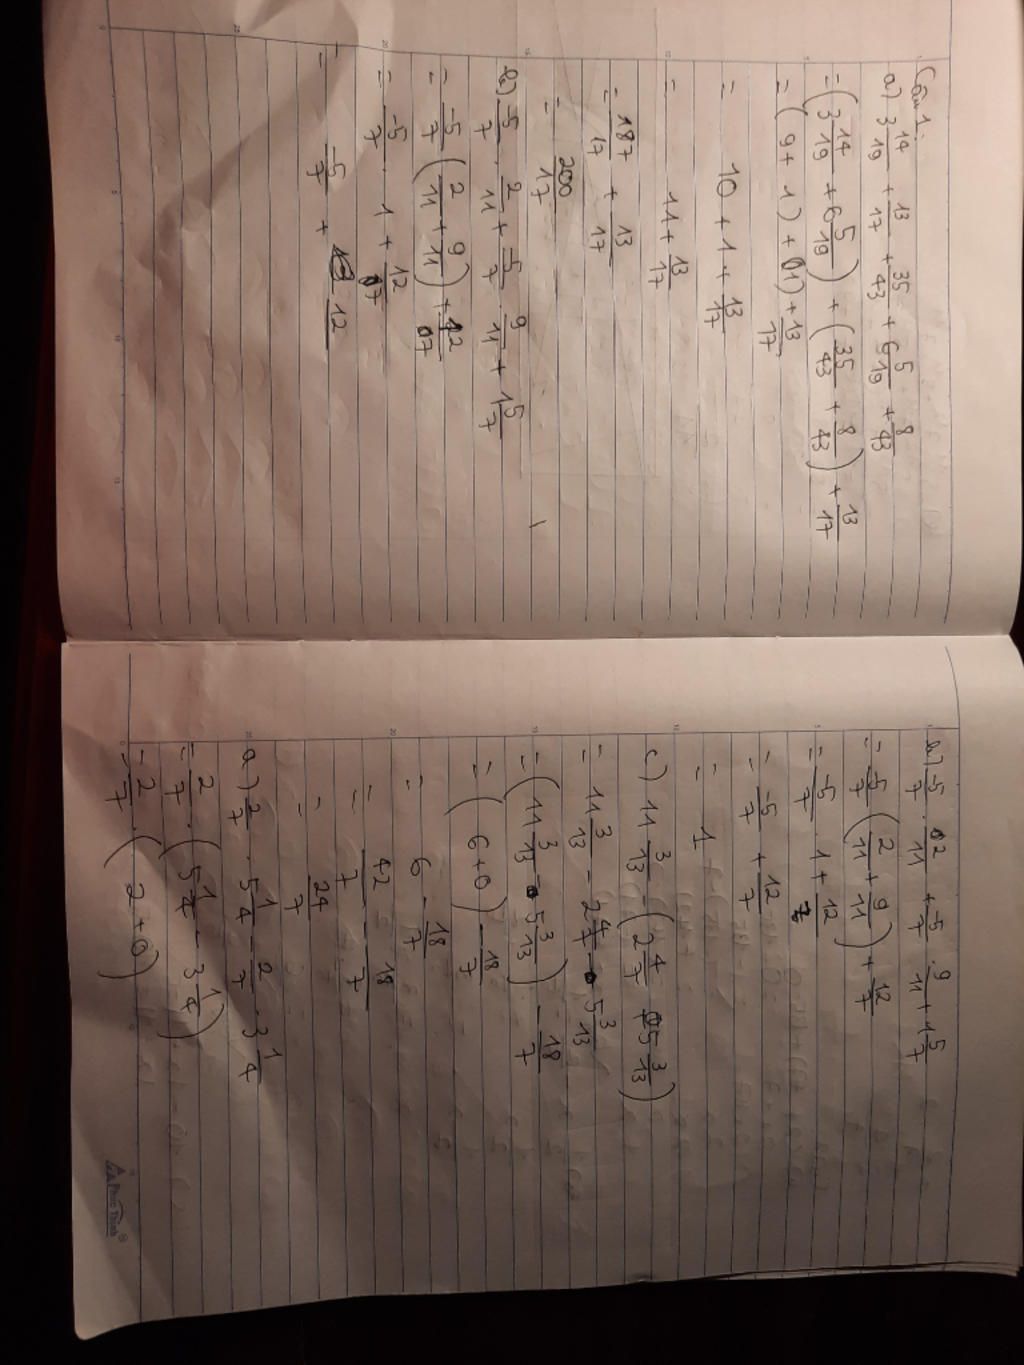 Câu 1:
a) 3 14/19 + 13/17 + 35/43 + 6 5/19 + 8/43
= (3 14/19 + 6 5/19) + (35/43 + 8/43) + 13/17
= (9 + 1) + (1) + 13/17
= 10 + 1 + 13/17
= 11 + 13/17
= 187/17 + 13/17
= 200/17
b) -5/7 . 2/11 + -5/7 . 9/11 + 1 5/7
= -5/7 (2/11 + 9/11) + 12/7
= -5/7 . 1 + 12/7
= -5/7 + 12
=
b) -5/7 . 2/11 + -5/7 . 9/11 + 1 5/7
= -5/7 (2/11 + 9/11) + 12/7
= -5/7 . 1 + 12/7
= -5/7 + 12/7
= 1
c) 11 3/13 - (2 4/7 + 5 3/13)
= 11 3/13 - 2 4/7 - 5 3/13
= (11 3/13 - 5 3/13) - 18/7
= (6 + 0) - 18/7
= 6 - 18/7
= 42/7 - 18/7
= 24/7
a) 2/7 . 5 1/4 - 2/7 . 3 1/4
= 2/7 . (5 1/4 - 3 1/4)
= 2/7 . (2 + 0)
Phúc Thịnh